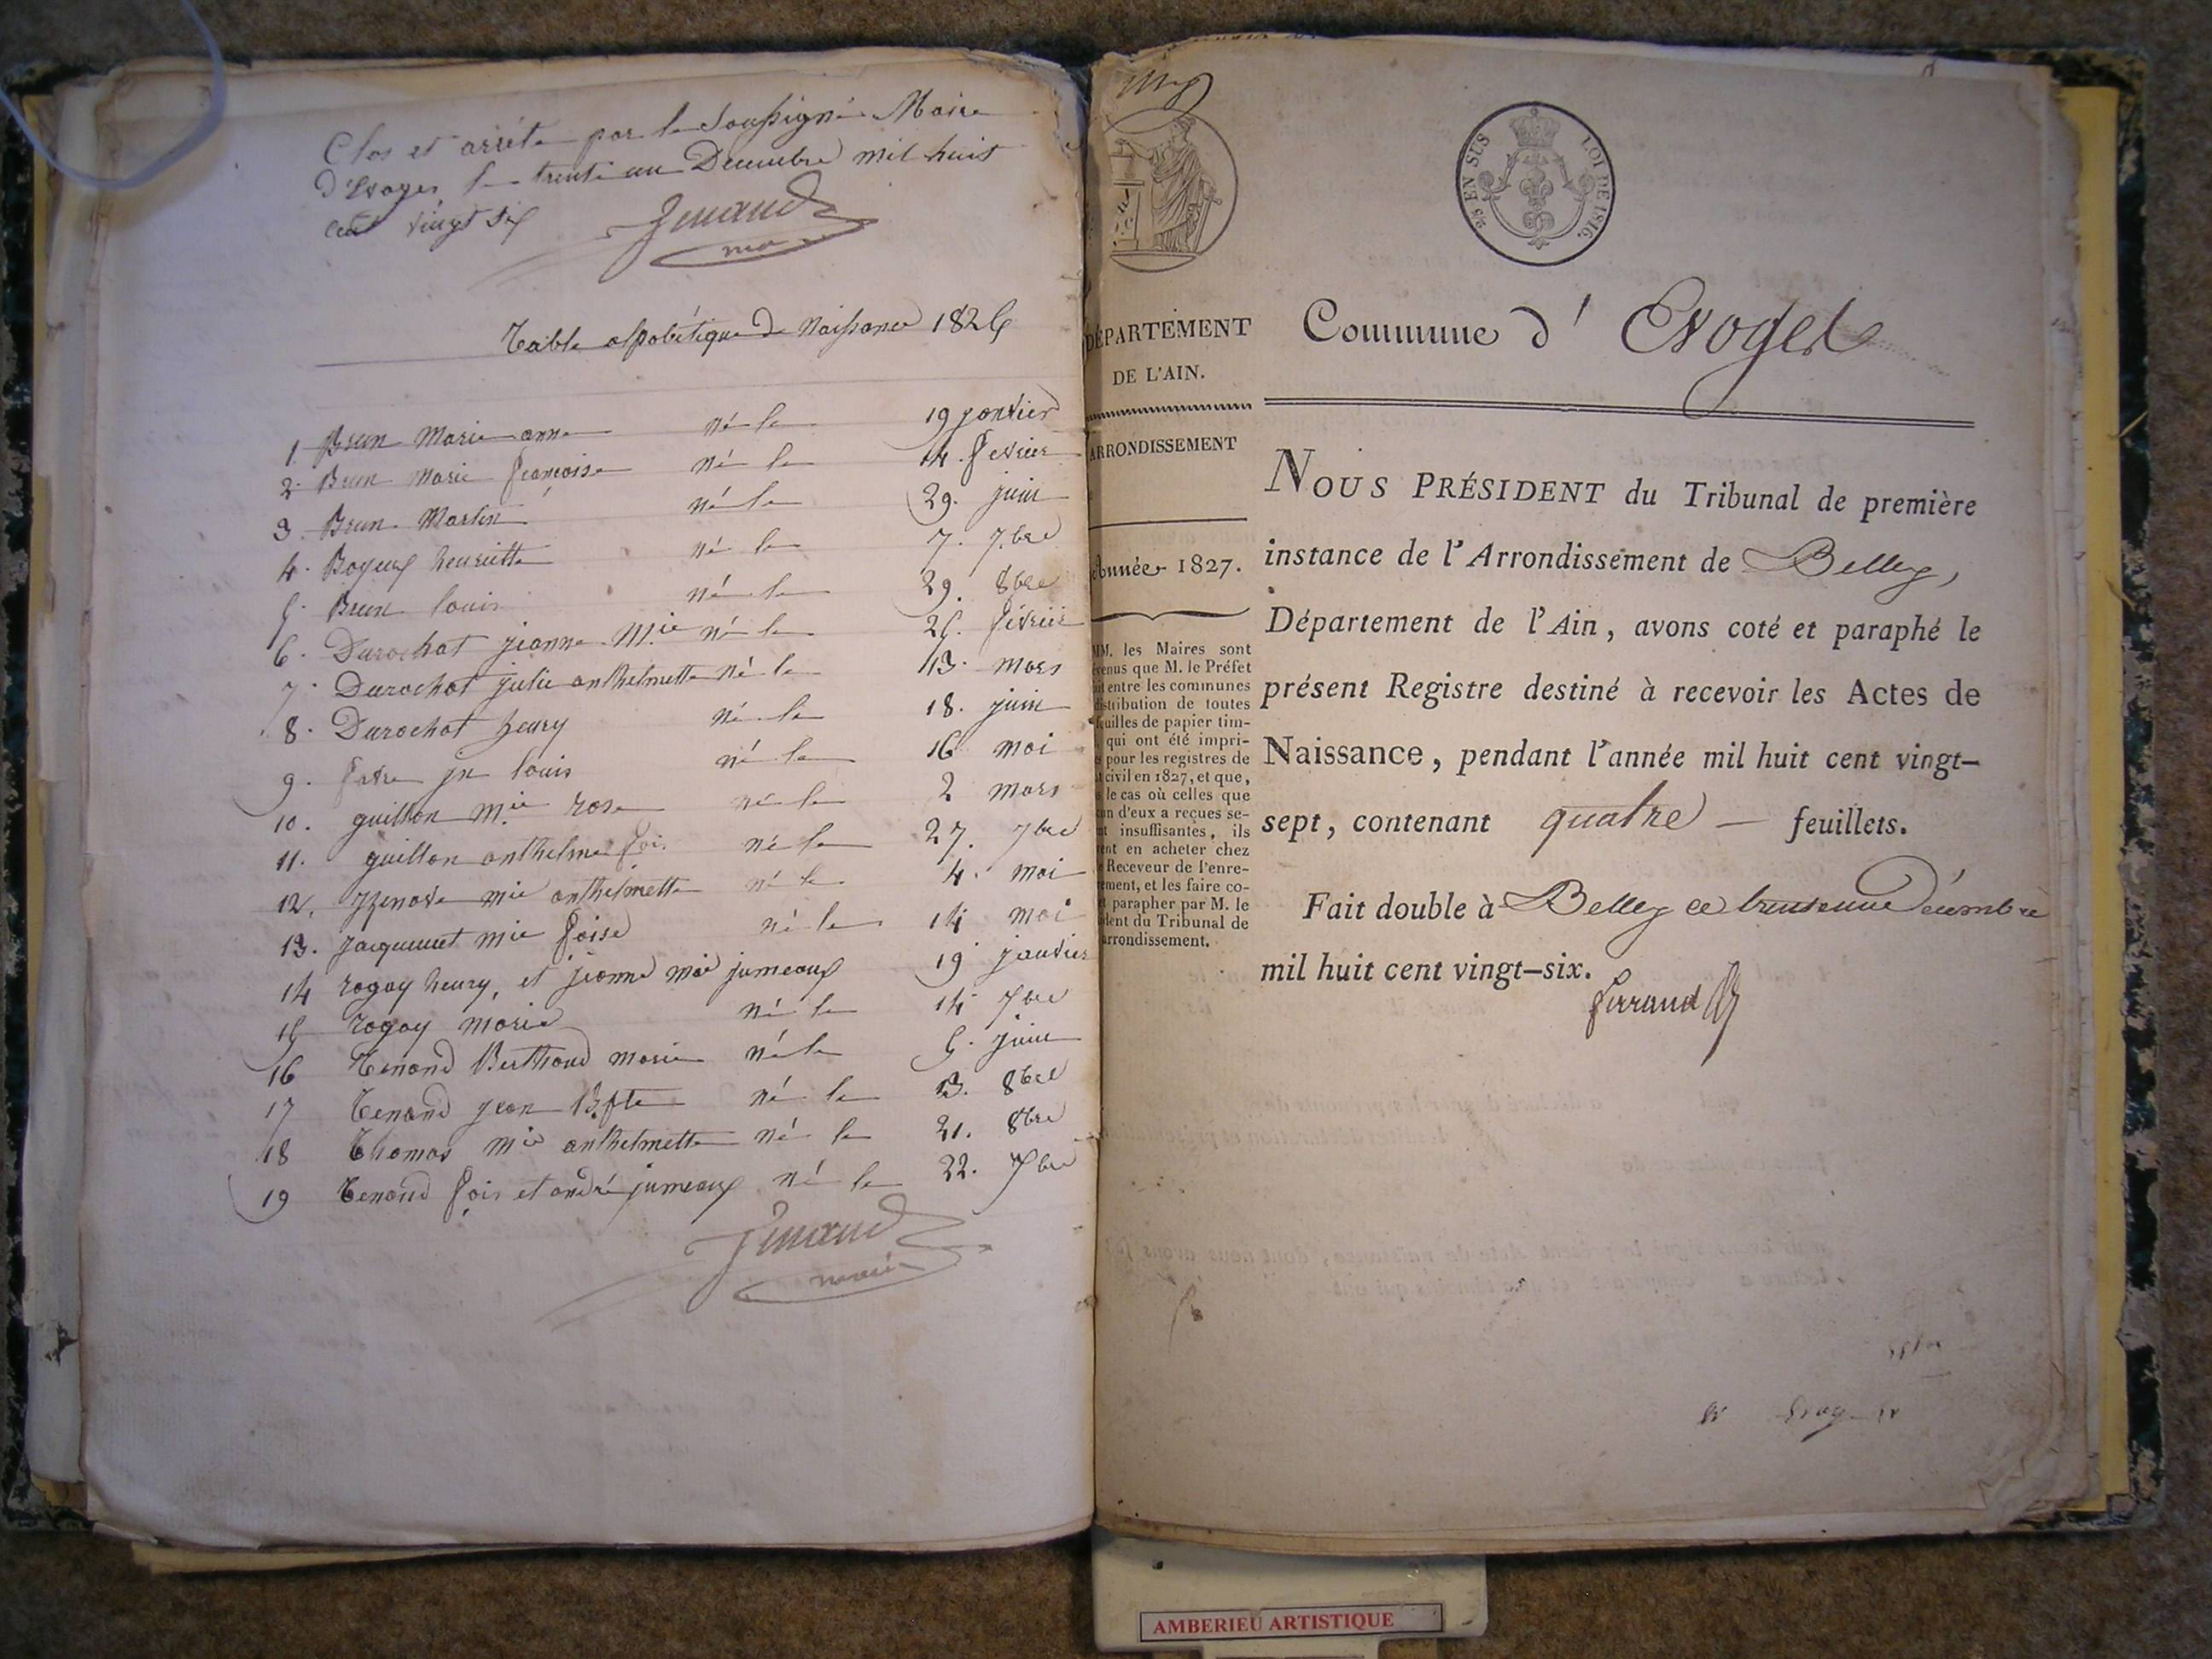 Clos et arrêté par le soussigné Maire
d'Evoges le trente un Decembre mil huit
cent vingt six
Tenand
Table alpabétique de Naissance 1826
1 Brun Marie anne né le 19 janvier
2. Brun Marie françoise né le 14. fevrier
3. Brun Martin né le 29. juin
4. Boyeux henriette né le 7. 7.bre
5. Brun louis né le 29. 8bre
6. Durochat jeanne M.ie né le 25. février
7. Durochat julie anthelmette né le 13. mars
8. Durochat henry né le 18. juin
9. favre jn louis né le 16 mai
10. guillon m.ie rose né le 2 mars
11. guillon anthelme fois. né le 27. 7bre
12. mie anthelmette né le 4. mai
13. jacquemet mie foise né le 14 mai
14 rogay henry, et jeanne mie jumeaux 19 janvier
15 rogay marie né le 14 7bre
16 Tenand Berthoud marie né le 5. juin
17 Tenand jean Bpte né le 13. 8bre
18 Thomas mie anthelmette né le 21. 8bre
19 Tenand fois et andré jumeaux né le 22. 7bre
Tenand
maire
25 EN SUS LOI DE 1816.
DÉPARTEMENT
DE L'AIN.
ARRONDISSEMENT
Année 1827.
MM. les Maires sont
que M. le Préfet
entre les communes
distribution de toutes
feuilles de papier tim-
qui ont été impri-
pour les registres de
civil en 1827, et que,
le cas où celles que
d'eux a reçues se-
insuffisantes, ils
en acheter chez
Receveur de l'enre-
et les faire co-
parapher par M. le
du Tribunal de
arrondissement.
Commune d' Evoges
NOUS PRÉSIDENT du Tribunal de première
instance de l'Arrondissement de Belley,
Département de l'Ain, avons coté et paraphé le
présent Registre destiné à recevoir les Actes de
Naissance, pendant l'année mil huit cent vingt-
sept, contenant quatre — feuillets.
Fait double à Belley ce trente une Décembre
mil huit cent vingt-six.
Ferrand
AMBERIEU ARTISTIQUE